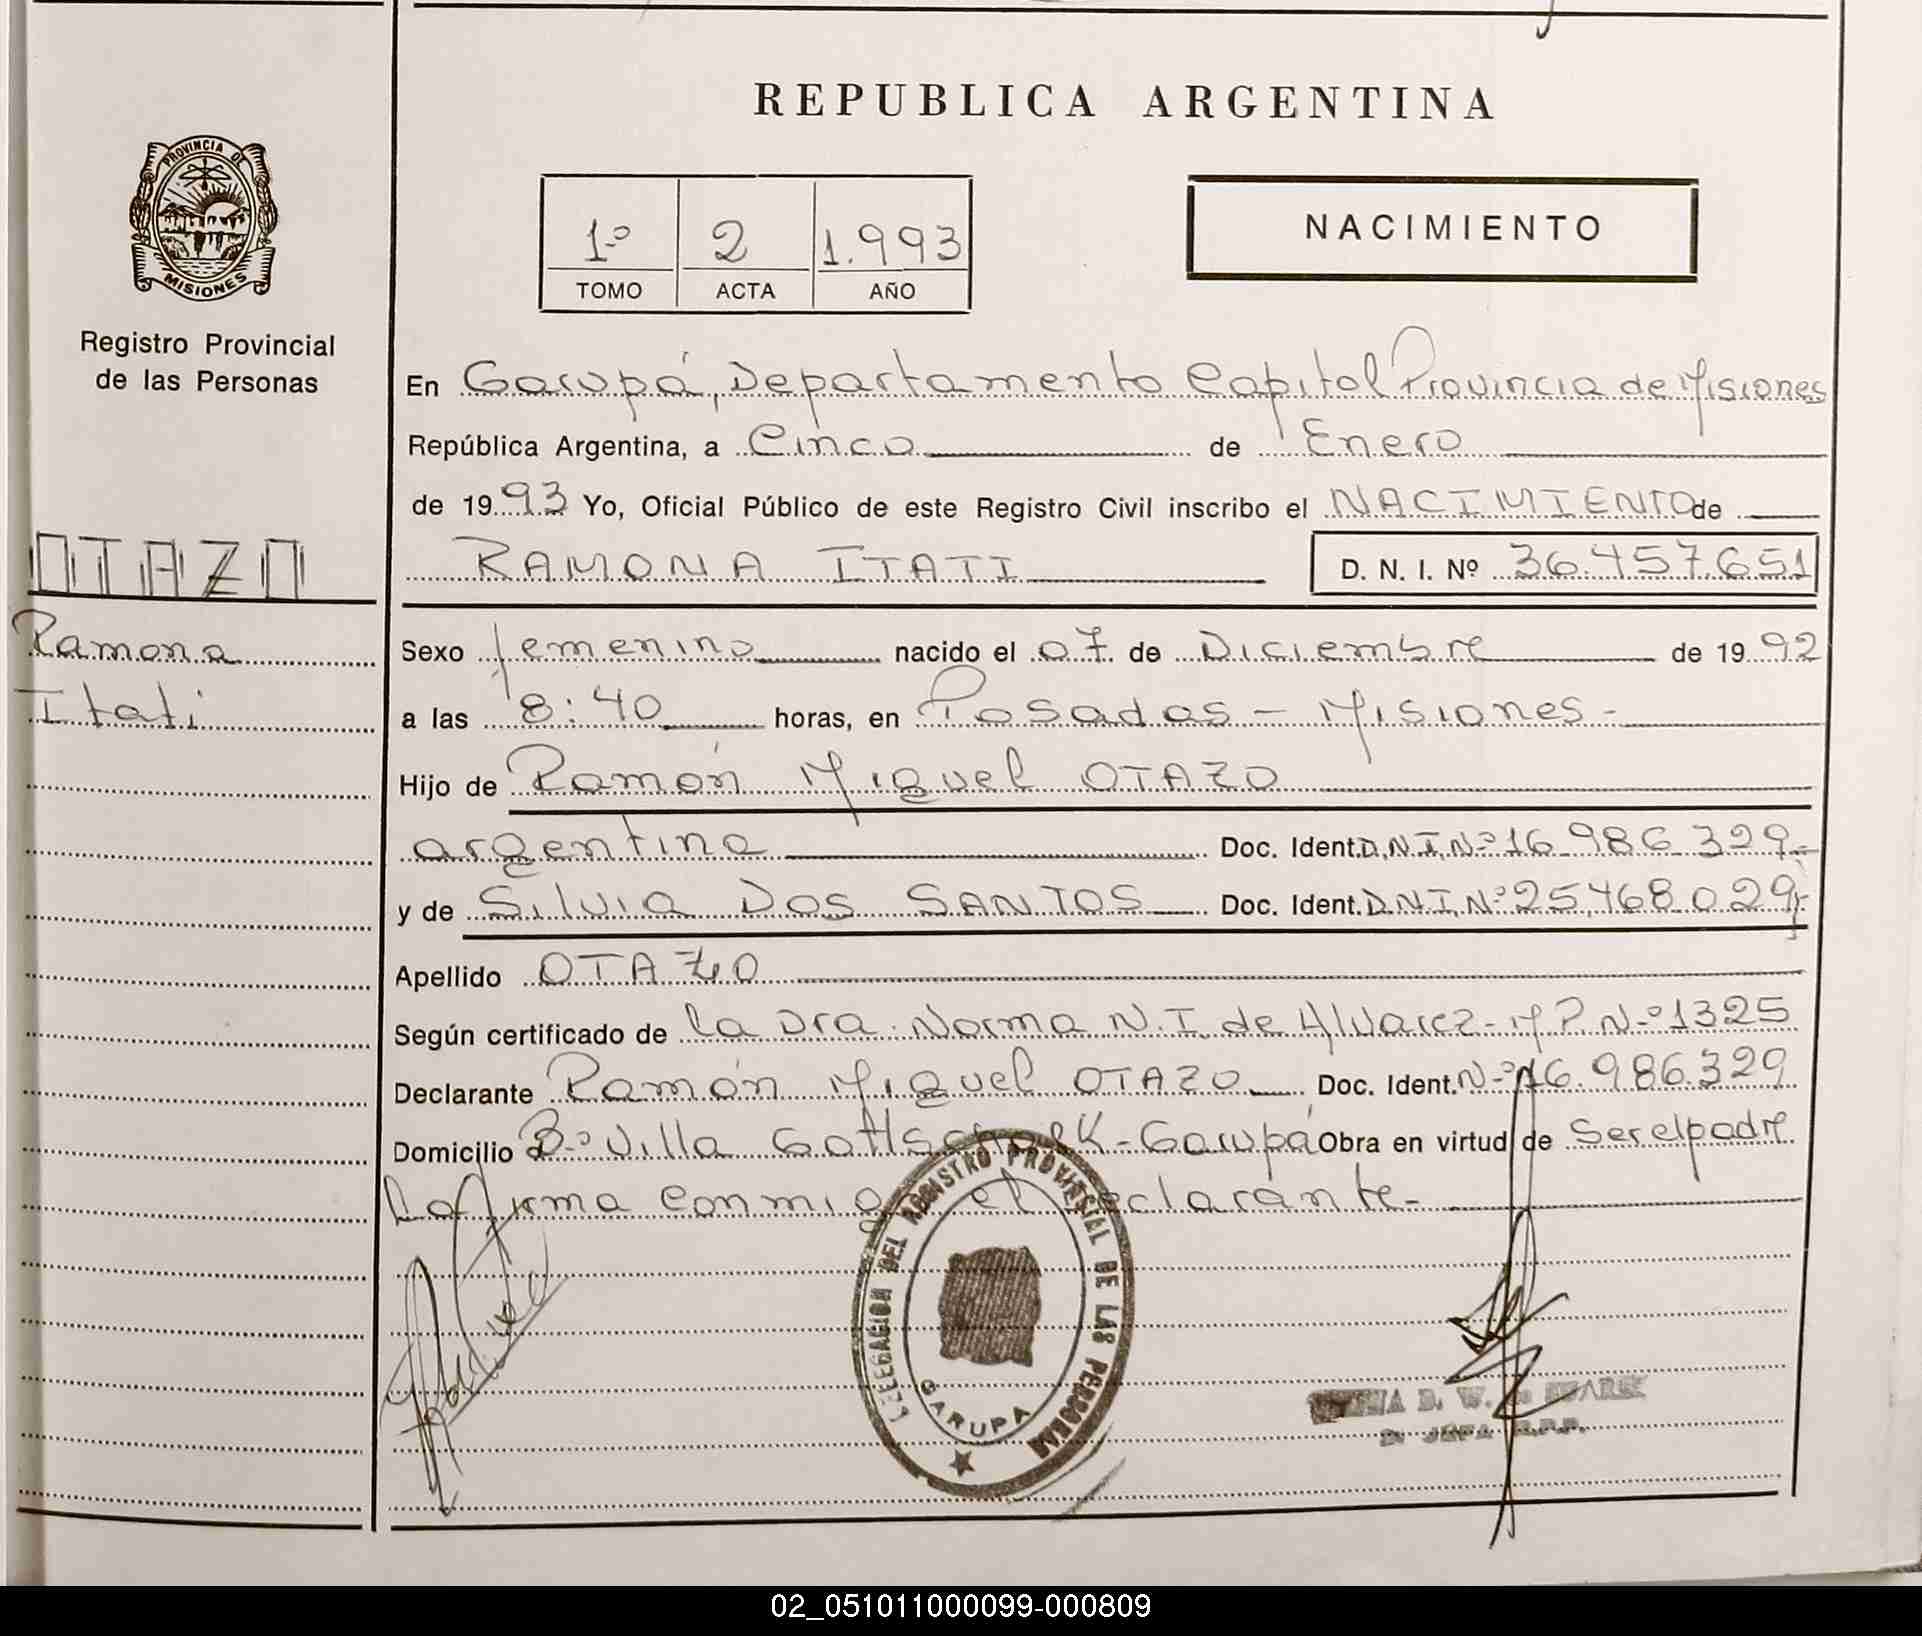 REPUBLICA ARGENTINA
PROVINCIA DE
MISIONES
Registro Provincial
de las Personas
1º 2 1.993
TOMO ACTA AÑO
NACIMIENTO
En Garupá, Departamento Capital Provincia de Misiones
República Argentina, a Cinco de Enero
de 1993 Yo, Oficial Público de este Registro Civil inscribo el NACIMIENTO de
RAMONA ITATI D. N. I. Nº 36.457.651
OTAZO
Ramona
Itati
Sexo femenino nacido el 07 de Diciembre de 1992
a las 8:40 horas, en Posadas - Misiones -
Hijo de Ramón Miguel OTAZO
argentina Doc. Ident. D.N.I.Nº 16.986.329.-
y de Silvia DOS SANTOS Doc. Ident. D.N.I.Nº 25.468.029,-
Apellido OTAZO
Según certificado de la Dra. Norma N.I. de Alvarez - M.P. Nº 1325
Declarante Ramón Miguel OTAZO Doc. Ident. Nº 16.986.329
Domicilio Bº Villa Gottschalk - Garupá Obra en virtud de Ser el padre
La firma conmigo el declarante -
DELEGACION DEL REGISTRO PROVINCIAL DE LAS PERSONAS
GARUPA
D. W. de
JEFA R.P.P.
02_051011000099-000809